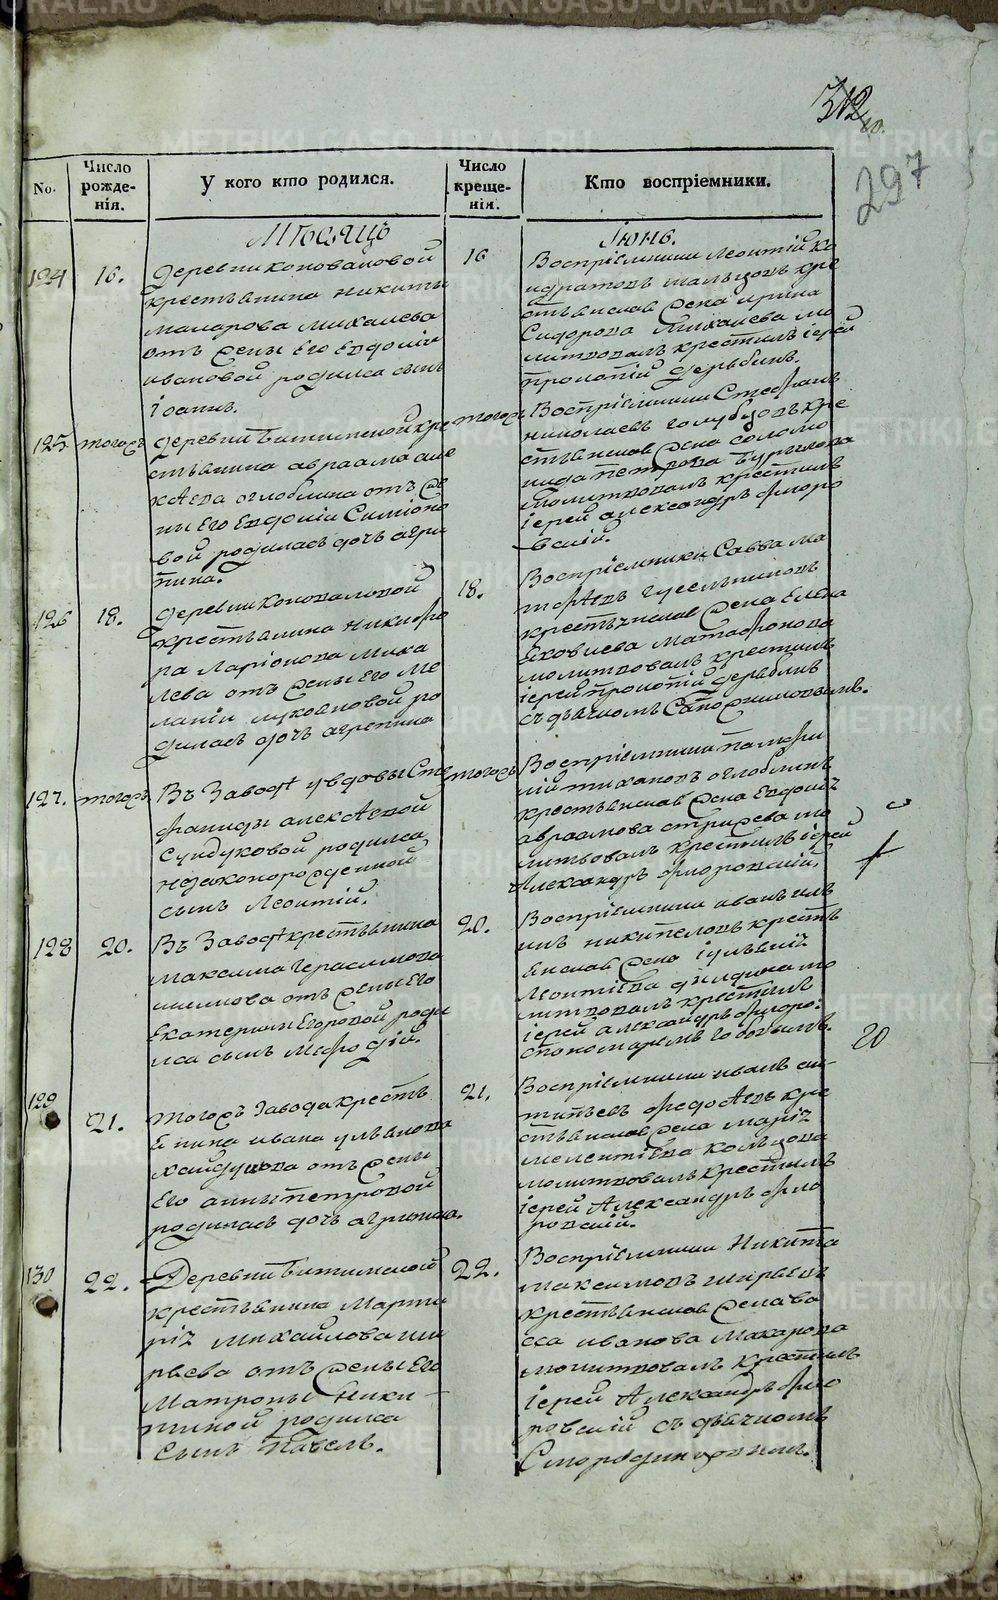 312
297
No.
Число рожденія.
У кого кто родился.
Число крещенія.
Кто воспріемники.
Мѣсяцъ
Іюнь.
124
16.
деревни коноваловой
крестьянина никиты
макарова михалева
отъ жены его евдокіи
ивановой родился сынъ
Іоаннъ.
16
Воспріемники леонтій ко
ндратовъ мальцовъ кре
стьянской жена ирина
Сидорова михалева мо
литвовалъ крестилъ іерей
прокопій дерябинъ.
125
тогожъ
деревни битимской кре
стьянина авраама але
ксѣева оглоблина отъ же
ны его евдокіи Симіоно
вой родилась дочь агри
пина.
тогожъ
Воспріемники Стефанъ
николаевъ голубцовъ кре
стьянской жена соломо
нида петрова
молитвовалъ крестилъ
іерей александръ флоро
вскій.
126
18.
деревни коноваловой
крестьянина никифо
ра ларіонова миха
лева отъ жены его ме
ланіи лукояновой ро
дилась дочь агрепина
18.
Воспріемники Савва ма
тфѣевъ гусельниковъ
крестьянской жена елена
Яковлева матафонова
молитвовалъ крестилъ
іерей прокопій дерябинъ
съ дьячкомъ Сапожниковымъ.
127.
тогожъ
Въ Заводѣ у вдовы Сте
фаниды алексѣевой
Сундуковой родился
незаконорожденной
сынъ Леонтій.
тогожъ
Воспріемники памфи
лій тихановъ оглоблинъ
крестьянской жена евдокія
авраамова стрижева мо
литвовалъ крестилъ іерей
Александръ флоровскій.
128
20.
Въ Заводѣ крестьянина
максима герасимова
отъ жены его
Екатерины егоровой роди
лса сынъ мефодій.
20.
Воспріемники иванъ иль
инъ никителовъ кресть
янской жена іульянія
леонтіева дылдина мо
литвовалъ крестилъ
іерей александръ флоро:
спономаремъ
20
129
21.
тогожъ Завода кресть
янина ивана ульянова
хайдукова отъ жены
его анны петровой
родилась дочь агрипина.
21.
Воспріемники иванъ ан-
типьевъ федосѣевъ кре
стьянской жена марія
мелентіева кольцова
молитвовалъ крестилъ
іерей Александръ фло
ровскій.
130
22.
Деревни битимской
крестьянина Марти
рія михайлова ши
рьева отъ жены его
Матроны ники-
тиной родилса
Сынъ Павелъ.
22.
Воспріемники Никита
максимовъ ширьевъ
крестьянской жена ва
сса иванова макарова
молитвовалъ крестилъ
іерей Александръ фло
ровскій съ дьячкомъ
Смородинцовымъ.
METRIKI.GASO-URAL.RU